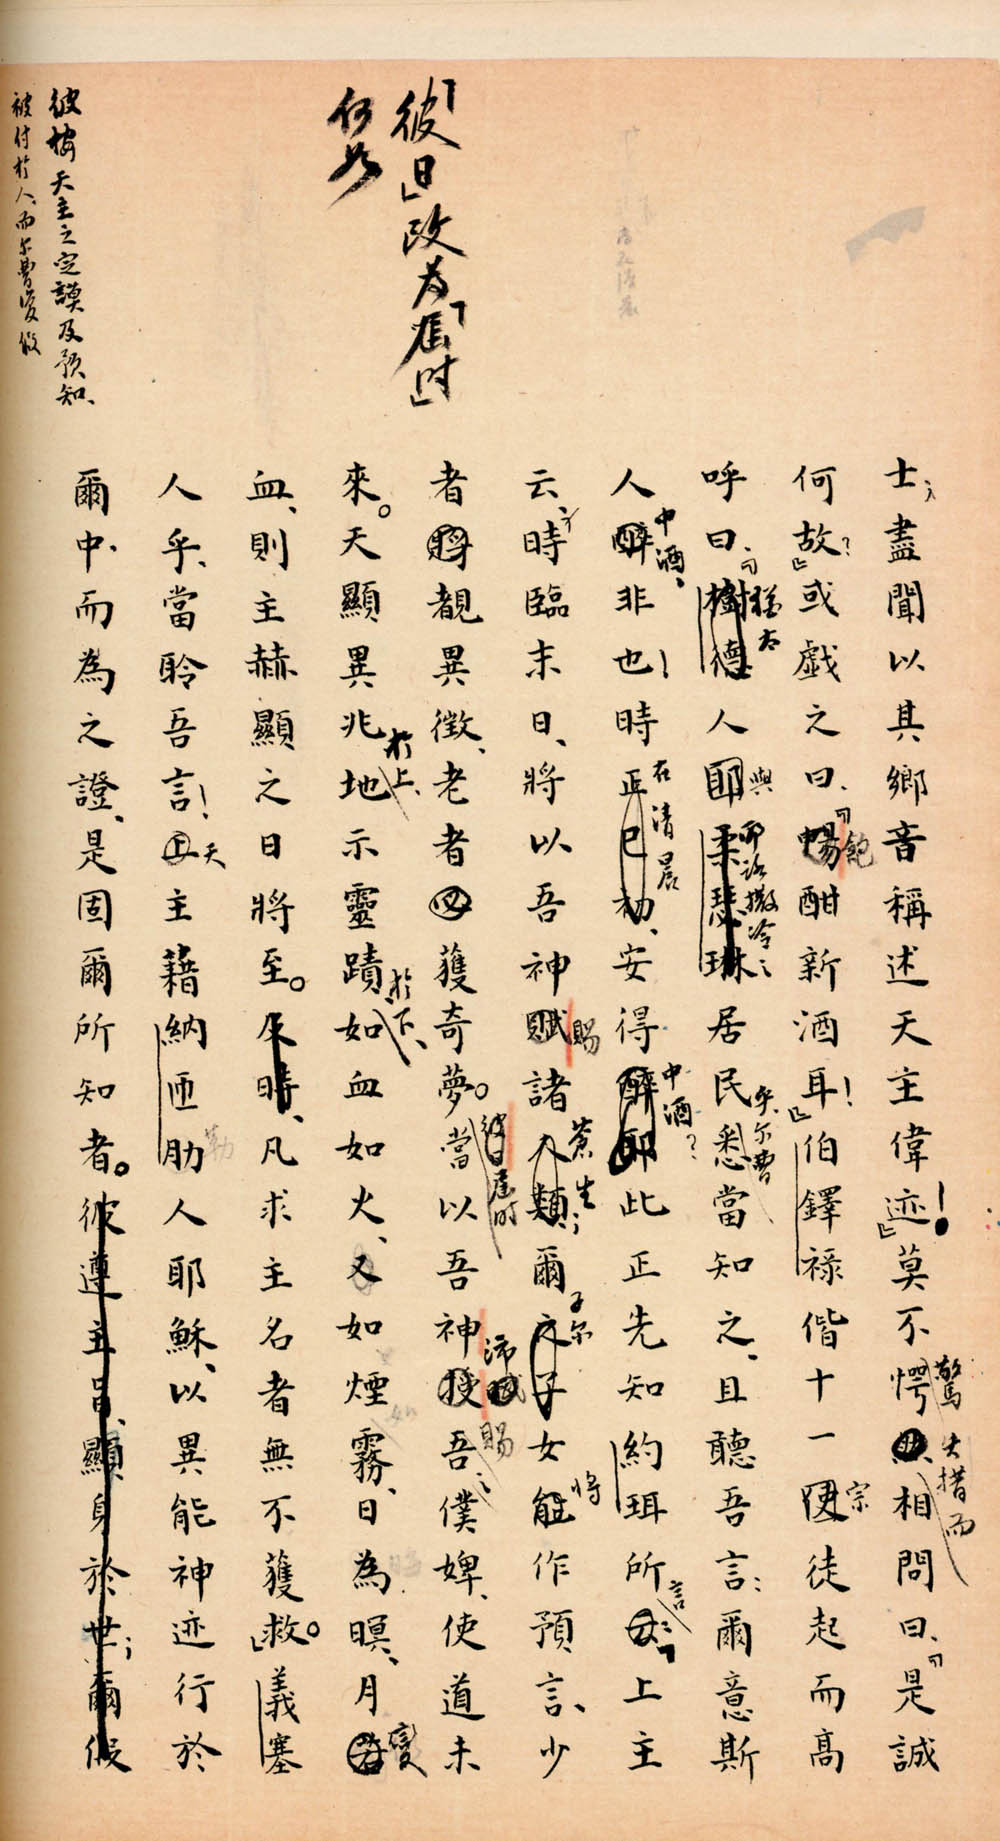 「彼日」改為「屆时」
何如
彼按天主之定謨及預知、
被付於人、而尔曹復假
士、盡聞以其鄉音稱述天主偉迹！』莫不愕然相問曰、『是誠
驚
失措而
何故？』或戲之曰、『暢酣新酒耳！』伯鐸祿偕十一使徒起而高
飽
宗
呼曰、『樹德人耶柔瑟琳居民悉當知之、且聽吾言：爾意斯
猶太
與
耶路撒冷
乎、尔曹
人醉非也！時正巳初、安得醉耶此正先知約珥所云上主
中酒、
在清晨
中酒？
言：
云、時臨末日、將以吾神賦諸人類爾之子女能作預言、少
賜
蒼生；
子尔
將
者將覩異徵、老者又獲奇夢。當以吾神授吾僕婢、使道未
彼日屆时
沛
賜
來。天顯異兆地示靈蹟如血如火、又如煙霧、日為暝、月若
於上、
於下、
變
血、則主赫顯之日將至。及時、凡求主名者無不獲救。』義塞
人乎、當聆吾言！上主藉納匝肋人耶穌、以異能神迹行於
天
勒
爾中、而為之證、是固爾所知者。彼遵主旨、顯身於世；爾假